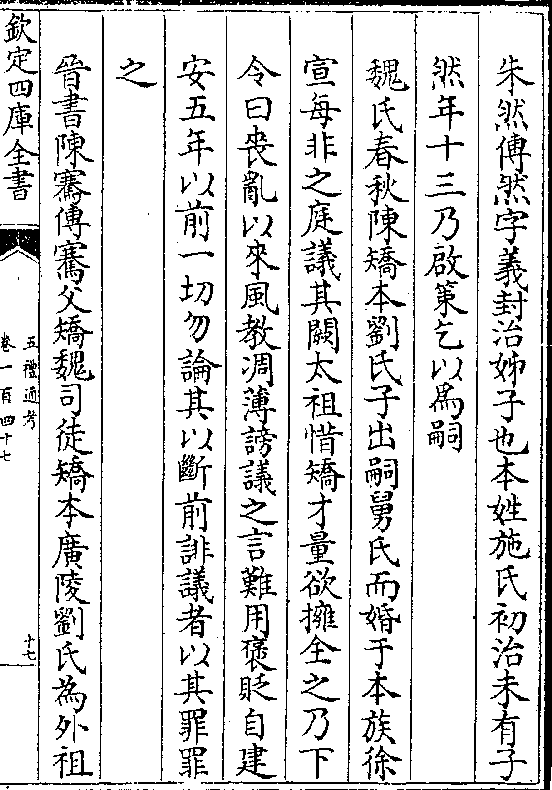 朱然傳然字義封治姊子也本姓施氏初治未有子
然年十三乃啟策乞以為嗣
魏氏春秋陳矯本劉氏子出嗣舅氏而婚于本族徐
宣每非之庭議其闕太祖惜矯才量欲擁全之乃下
令曰喪亂以來風教凋薄謗議之言難用褒貶自建
安五年以前一切勿論其以斷前誹議者以其罪罪
之
晉書陳騫傳騫父矯魏司徒矯本廣陵劉氏為外祖
欽定四庫全書
五禮通考
卷一百四十七
十七